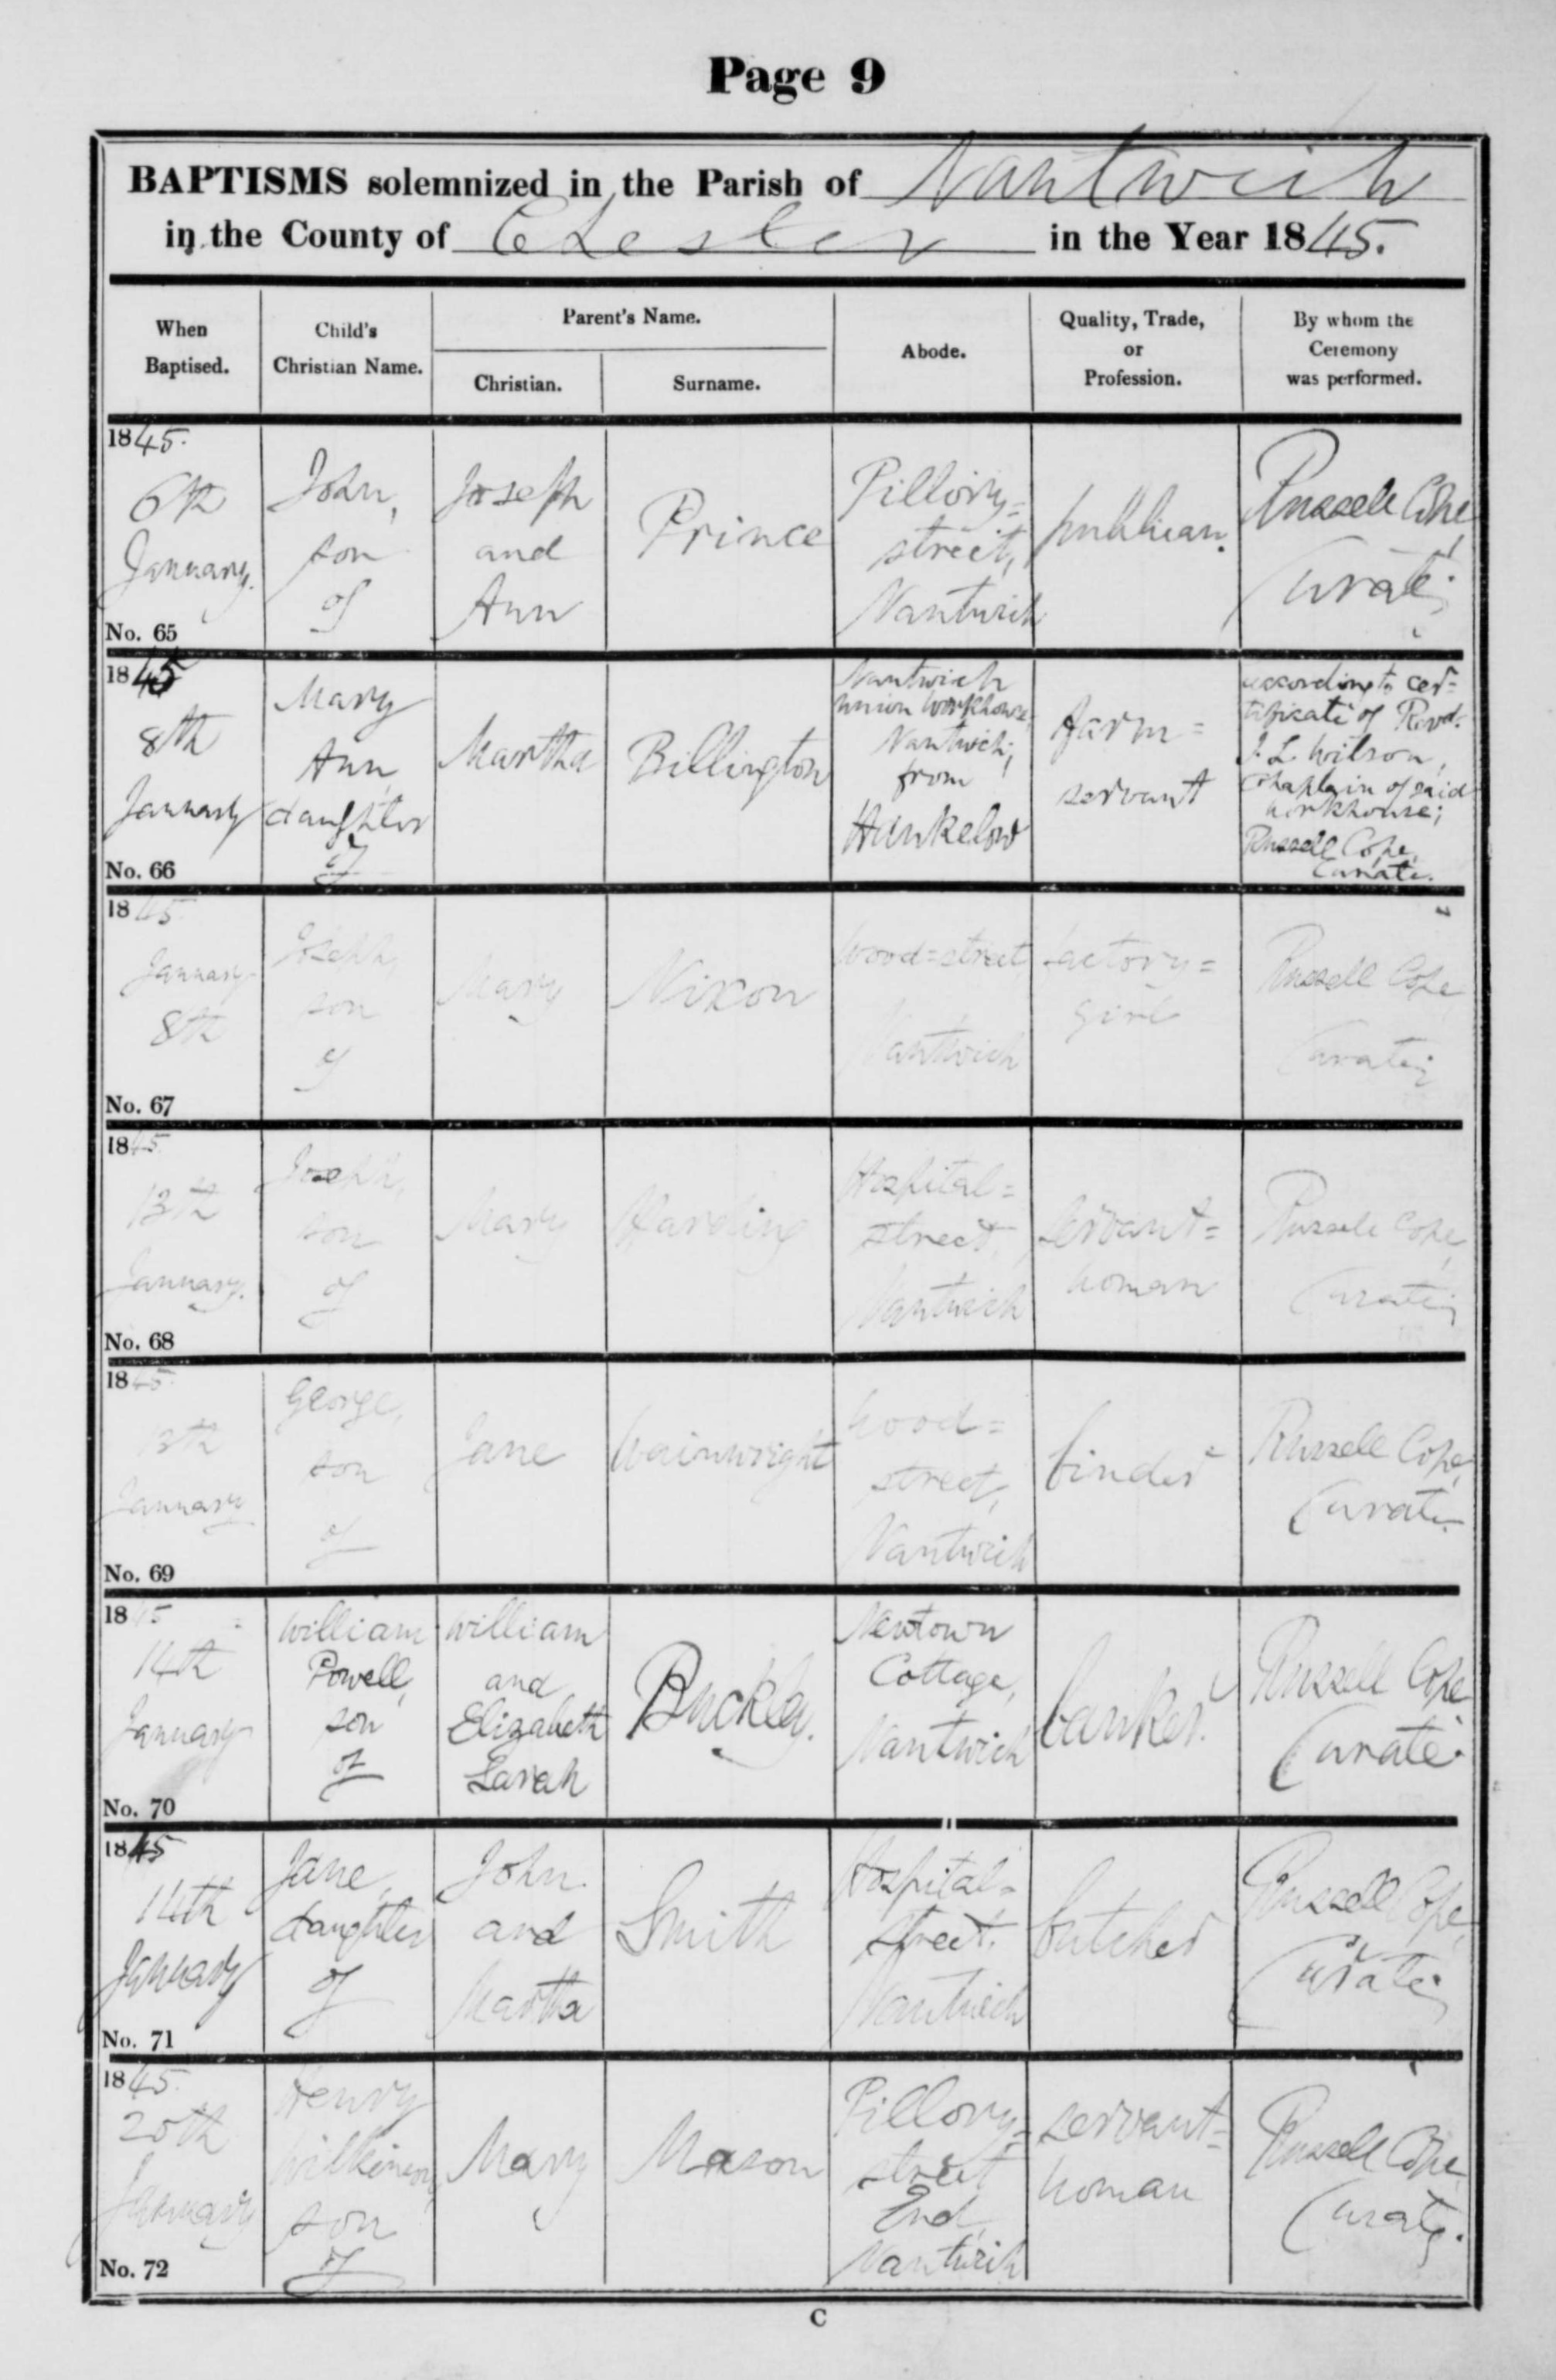 Page 9
BAPTISMS solemnized in the Parish of Nantwich
in the County of Chester in the Year 1845.
When
Baptised.
Child's
Christian Name.
Parent's Name.
Christian.
Surname.
Abode.
Quality, Trade,
or
Profession.
By whom the
Ceremony
was performed.
1845.
6th
January.
No. 65
John,
son
of
Joseph
and
Ann
Prince
Pillory=
street,
Nantwich
publican.
Russell Cope,
Curate.
1845
8th
January
No. 66
Mary
Ann,
daughter
of
Martha
Billington
Nantwich
Union Workhouse,
Nantwich;
from
Hankelow
farm=
servant
according to cer=
tificate of Revd.
J. L. Wilson,
Chaplain of said
workhouse;
Russell Cope,
Curate.
1845.
January
8th
No. 67
Joseph,
son
of
Mary
Nixon
Wood=street
Nantwich
factory=
girl
Russell Cope
Curate;
1845.
13th
January.
No. 68
Joseph,
son
of
Mary
Harding
Hospital=
street,
Nantwich
servant=
woman
Russell Cope,
Curate;
1845.
13th
January
No. 69
George,
son
of
Jane
Wainwright
Wood=
street,
Nantwich
binder
Russell Cope,
Curate.
1845
14th
January
No. 70
William
Powell,
son
of
William
and
Elizabeth
Sarah
Buckley.
Newtown
Cottage,
Nantwich
banker.
Russell Cope
Curate.
1845
14th
January
No. 71
Jane,
daughter
of
John
and
Martha
Smith
Hospital=
street.
Nantwich
butcher
Russell Cope,
Curate;
1845.
20th
January
No. 72
Henry
Wilkinson,
son
of
Mary
Mason
Pillory=
street
End,
Nantwich
servant=
woman
Russell Cope,
Curate.
C